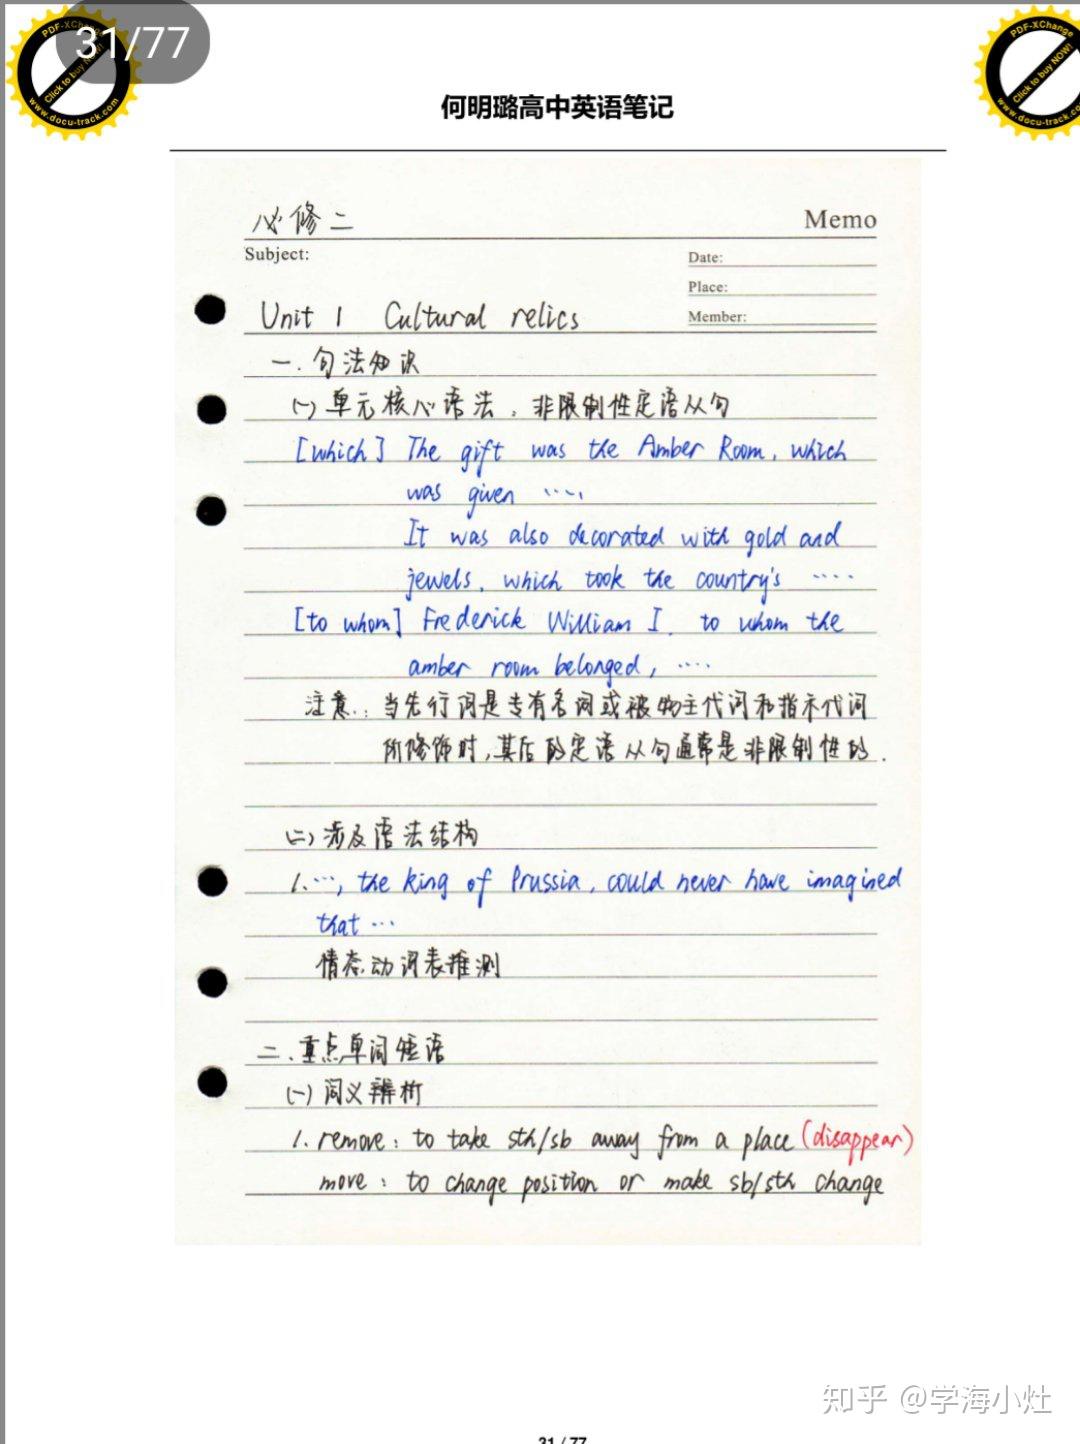 31/77
PDF-XChange
Click to buy NOW!
www.docu-track.com
PDF-XChange
Click to buy NOW!
www.docu-track.com
何明璐高中英语笔记
必修二
Memo
Subject:
Date:
Place:
Member:
Unit 1 Cultural relics
一.句法知识
(一)单元核心语法:非限制性定语从句
[which] The gift was the Amber Room, which
was given ····.
It was also decorated with gold and
jewels, which took the country's ····
[to whom] Frederick William I, to whom the
amber room belonged, ····
注意:当先行词是专有名词或被物主代词和指示代词
所修饰时,其后的定语从句通常是非限制性的.
(二)涉及语法结构
1.···, the king of Prussia, could never have imagined
that ···
情态动词表推测
二.重点单词短语
(一)词义辨析
1. remove: to take sth/sb away from a place (disappear)
move: to change position or make sb/sth change
知乎 @学海小灶
31 / 77